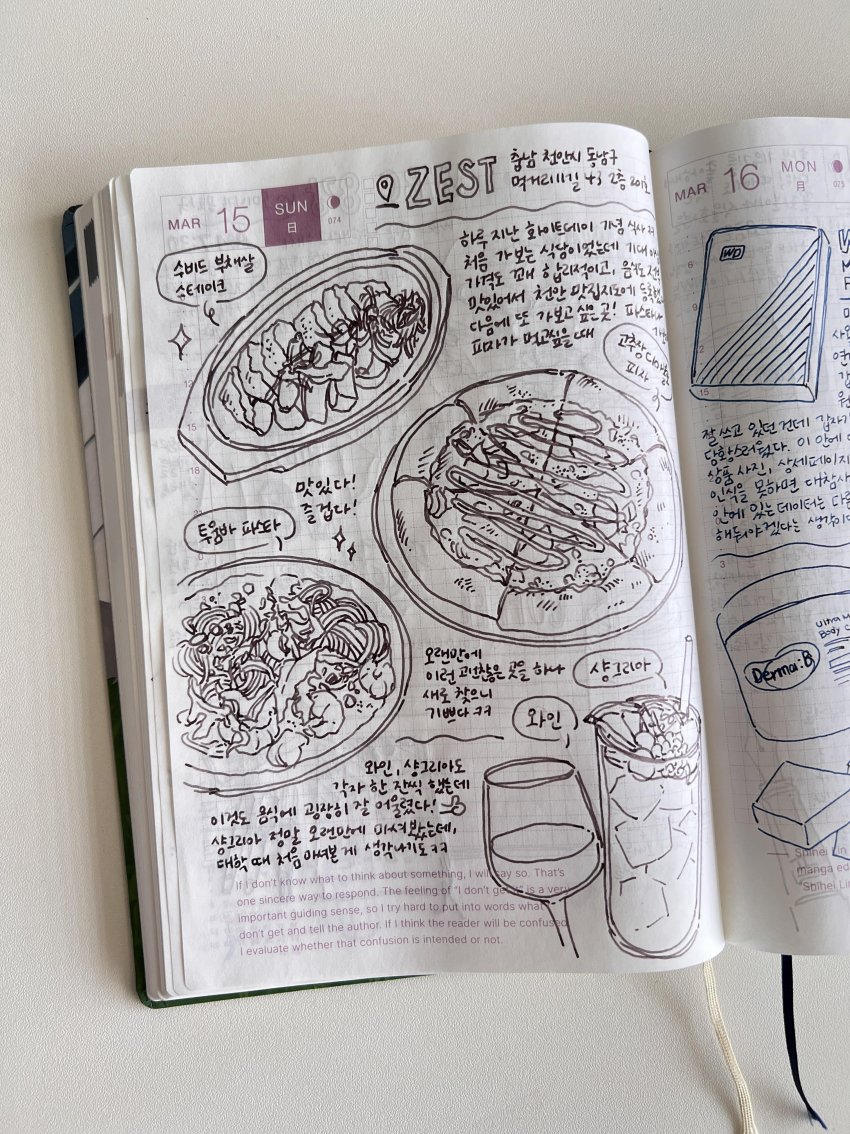 MAR 15 SUN
日
074
ZEST
충남 천안시 동남구
먹거리11길 43 2층 201호
수비드 부채살
스테이크
하루 지난 화이트데이 기념 식사 ㅋㅋ
처음 가보는 식당이었는데 기대
가격도 꽤 합리적이고, 음식도 전부
맛있어서 천안 맛집지도에
다음에 또 가보고 싶은 곳! 파스타나
피자가 먹고싶을 때
고추장
피자
맛있다!
즐겁다!
투움바 파스타
오랜만에
이런 괜찮은 곳을 하나
새로 찾으니
기쁘다 ㅋㅋ
샹그리아
와인
와인, 샹그리아도
각자 한 잔씩 했는데
이것도 음식에 굉장히 잘 어울렸다!
샹그리아 정말 오랜만에 마셔봤는데,
대학 때 처음 마셔본 게 생각나기도 ㅋㅋ
If I don't know what to think about something, I will say so. That's
one sincere way to respond. The feeling of "I don't get it" is a very
important guiding sense, so I try hard to put into words what I
don't get and tell the author. If I think the reader will be confused,
I evaluate whether that confusion is intended or not.
MAR 16 MON
月
075
WD
잘 쓰고 있던 건데 갑자기
당황스러웠다. 이 안에
상품 사진, 상세페이지
인식을 못하면 대참사
안에 있는 데이터는 다른
해둬야겠다는 생각이
Ultra
Body
Derma:B
Shihei Lin
manga ed
"Shihei Lin